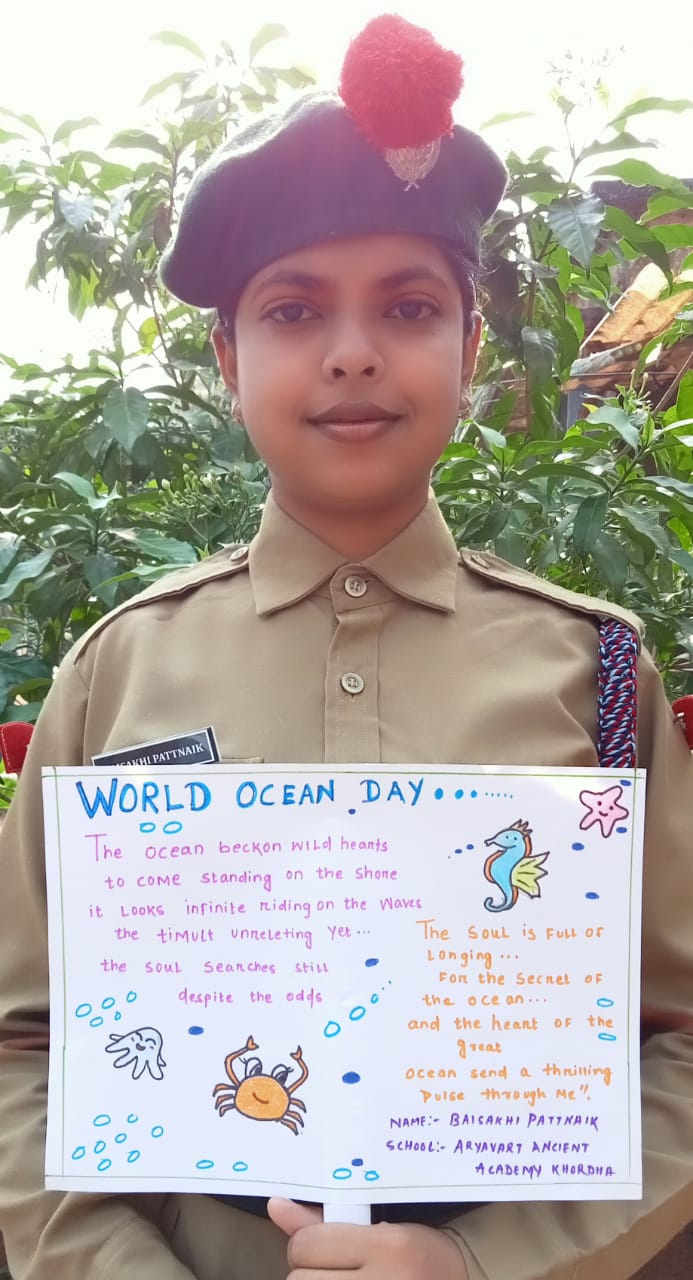 AISAKHI PATTNAIK
WORLD OCEAN DAY........
The ocean beckon wild hearts
to come standing on the shore
it looks infinite riding on the waves
the timult unreleting yet...
the soul searches still
despite the odds
The soul is full of
longing...
For the secret of
the ocean...
and the heart of the
great
ocean send a thrilling
pulse through me".
NAME:- BAISAKHI PATTNAIK
SCHOOL:- ARYAVART ANCIENT
ACADEMY KHORDHA